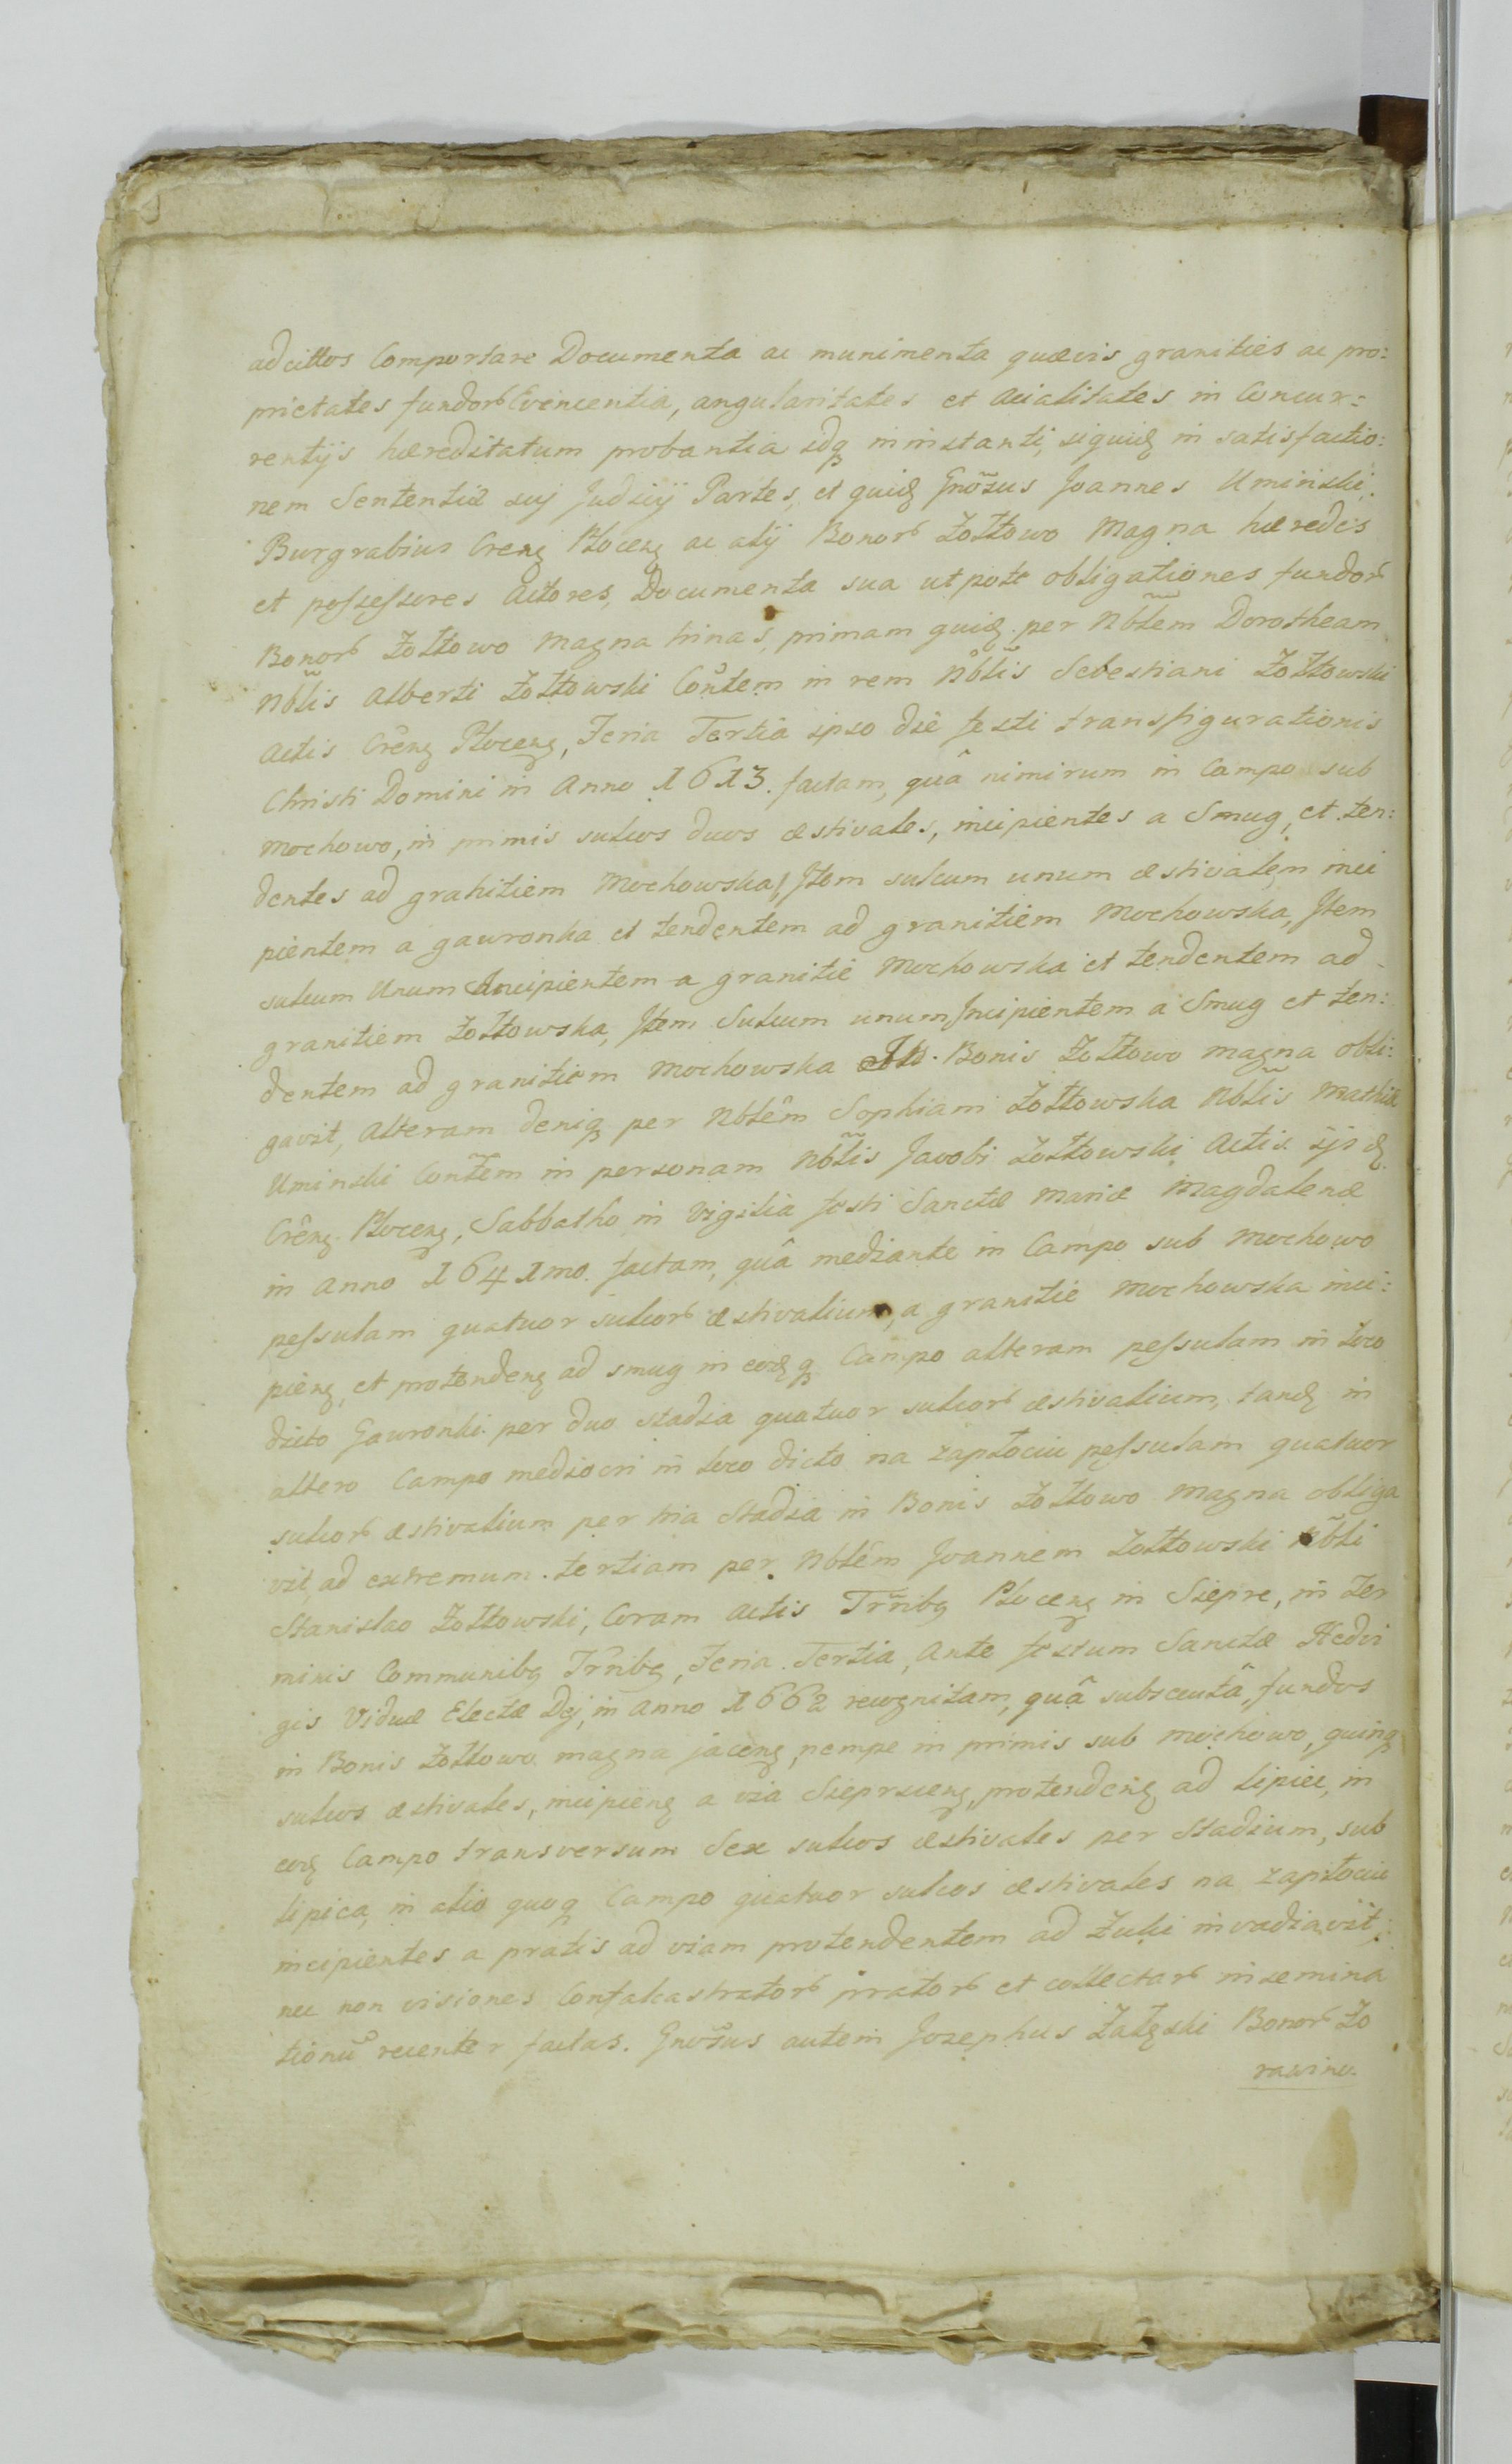 adcittos Comportare Documenta ac munimenta quævis granities ac pro:
prietates fundorũ Evincentia, angularitates et Acialitates in Concur=
rentijs hæreditatum probantia idq ininstanti, siquidẽ in satisfactio:
nem Sententiæ suj Judicij Partes, et quidẽ Gnõsus Joannes Umiński
Burgrabius Crens̨ Plocens̨ ac alij Bonorũ Żółtowo Magna hæredes
et possessores Actores, Documenta sua utpote obligationes fundorũ
Bonorũ Żółtowo Magna trinas, primam quidẽ per Nblẽm Dorotheam
Nblĩs Alberti Żółtowski Cont̃em in rem Nblĩs Sebestiani Żółtowski
Actis Crẽns̨ Plocens̨, Feria Tertia ipso die festi transfigurationis
Christi Domini in Anno 1613. factam, quâ nimirum in Campo sub
Mochowo, in primis sulcos duos æstivales, incipientes a Smug, et ten:
dentes ad granitiem Mochowska, Jtem sulcum unum æstivalem inci
pientem a gawronka et tendentem ad granitiem Mochowska, Jtem
sulcum Unum Incipientem a granitie Mochowska et tendentem ad
granitiem Żołtowska, Jtem Sulcum unum Jncipientem a Smug et ten:
dentem ad granitiem Mochowska Bonis Żołtowo magna obli:
gavit, Alteram deniq per Nblẽm Sophiam Żołtowska Nblĩs Mathiæ
Uminski Cont̃em in personam Nblĩs Jacobi Żołtowski Actis ijsdẽ
Crẽns̨ Plocens̨, Sabbatho in Vigilia festi Sanctæ Mariæ Magdalenæ
in Anno 1641mo. factam, quâ mediante in Campo sub Mochowo
pessulam quatuor sulcorũ æstivalium, a granitie Mochowska inci:
piens̨, et protendens̨ ad smug in eodẽq Campo alteram pessulam in loco
dicto Gawronki per duo stadia quatuor sulcorũ æstivalium, tandẽ in
altero Campo mediocri in loco dicto na zapłociu pessulam quatuor
sulcorũ æstivalium per tria Stadia in Bonis Żołtowo Magna obliga
vit, ad extremum tertiam per Nblẽm Joannem Żołtowski Nblĩ
Stanislao Żołtowski, Coram Actis Trr̃ibq Plocens̨ in Siepre, in Ter
minis Communibq Trr̃ibq, Feria Tertia, Ante festum Sanctæ Hedvi
gis Viduæ Electæ Dej, in Anno 1662 recognitam, quâ subsecutâ, fundos
in Bonis Żołtowo magna jacens̨, nempe in primis sub Mochowo, quinq
sulcos æstivales, incipiens̨ a via Sieprscens̨, protendens̨ ad lipice, in
eodẽ Campo transversum Sex sulcos æstivales per Stadium, sub
lipica, in alio quoq Campo quatuor sulcos æstivales na zapłociu
incipientes a pratis ad viam protendentem ad Żuki invadiavit,
nec non visiones Confalcastratorũ pratorũ et collectarũ insemina
tionũ recenter factas. Gnõsus autem Josephus Załęski Bonorũ Żo
rawino.